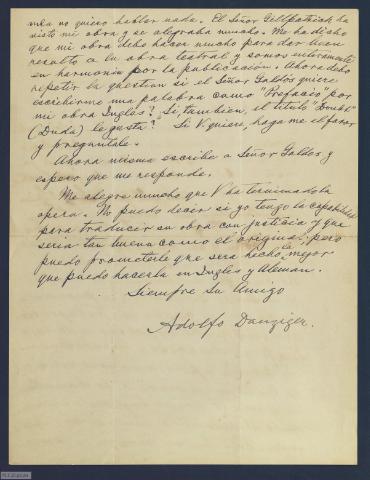 mía no quiero hablar nada. El Señor Gillpatrick ha
visto mi obra y se alegraba mucho. Me ha dicho
que mi obra debo hacer mucho para dar buen
resulto a la obra teatral y somos enteramente
en harmonía por la publicación. Ahora debo
repetir la question si el Señor Galdós quiere
escribirme una palabra como "Prefacio" por
mi obra Inglés? Si, tambien, el titulo
(Duda) le gusta? Si V. quiere, haga me el favor
y preguntale.
Ahora misma escribe a Señor Galdos y
espero que me responde.
Me alegre mucho que V ha terminado la
opera. No puedo decir si yo tengo la capabilidad
para traducir su obra con justicia y que
sera tan buena como el original, pero
puedo prometerle que sera hecho la mejor
que puedo hacerla en Inglés y Aleman.
Siempre Su Amigo
Adolfo Danziger.